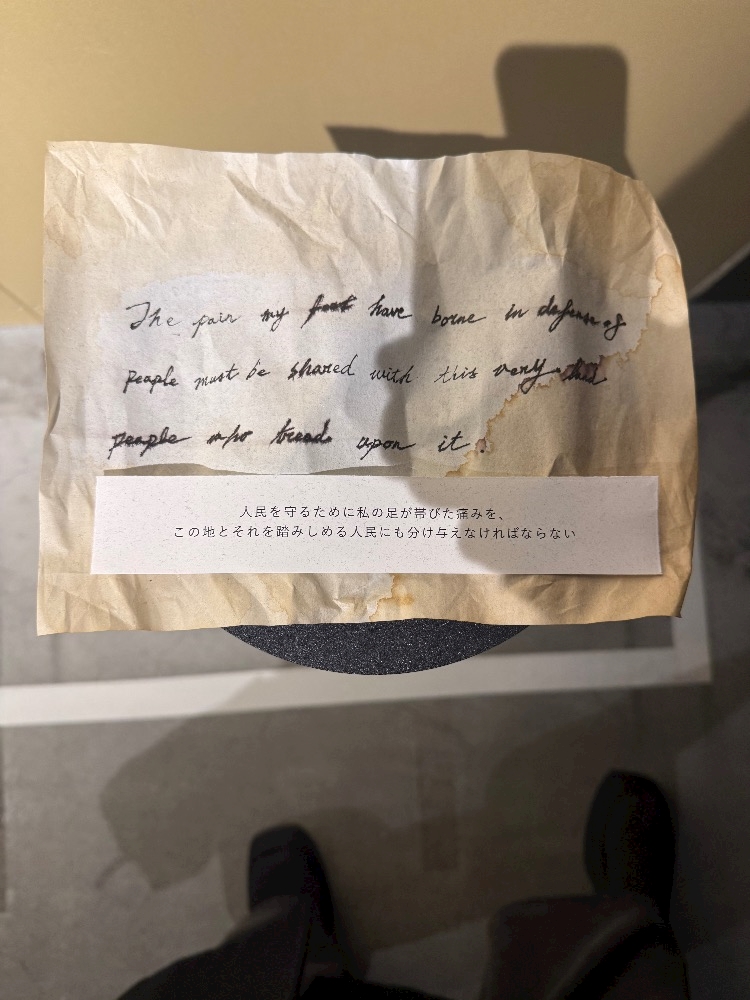 The pain my feet have borne in defense of
people must be shared with this very land
people who tread upon it.
人民を守るために私の足が帯びた痛みを、
この地とそれを踏みしめる人民にも分け与えなければならない